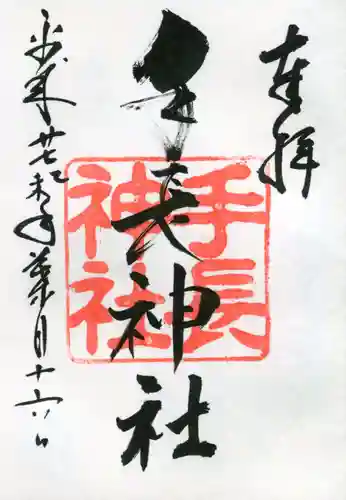 奉拝
手長神社
手長
神社
平成廿七己未年葉月十六日